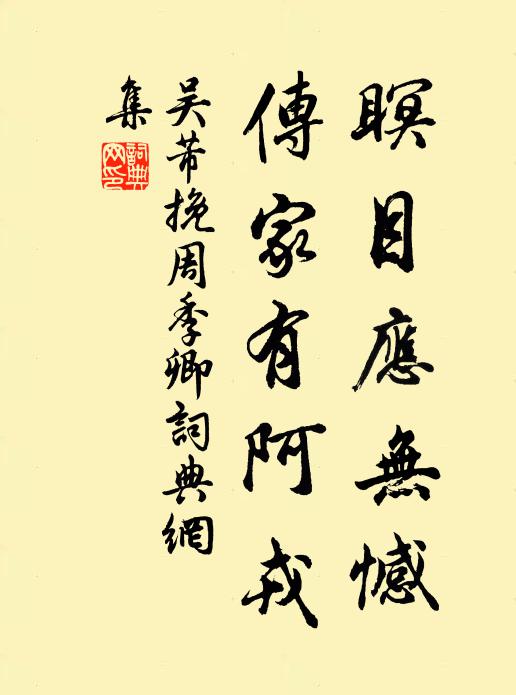 瞑目應無憾
傳家有阿戎
吳芾挽周季卿詞典網
集
詞典
网印